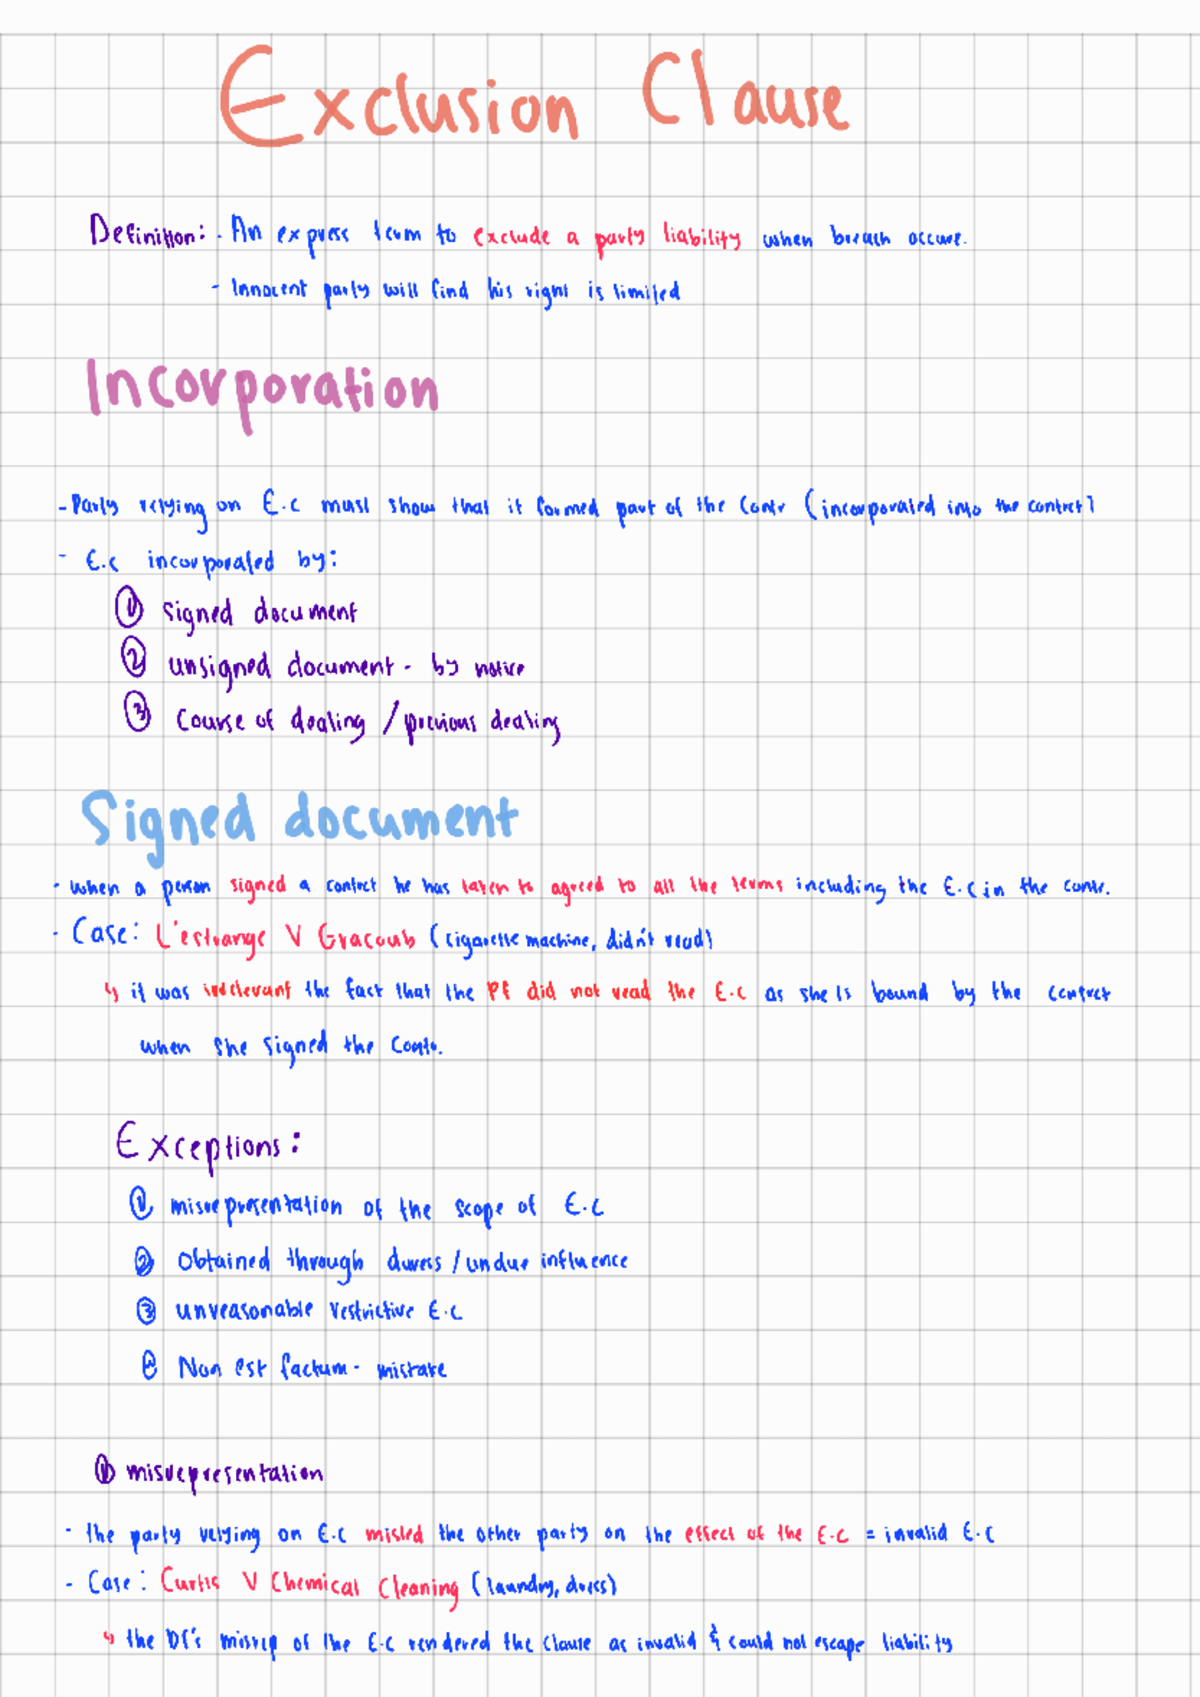 Exclusion Clause
Definition: - An express term to exclude a party liability when breach occurs.
- Innocent party will find his right is limited
Incorporation
- Party relying on E.C must show that it formed part of the Contr (incorporated into the contrct)
- E.C incorporated by:
① signed document
② unsigned document - by notice
③ Course of dealing / previous dealing
Signed document
- When a person signed a contrct he has taken to agreed to all the terms including the E.C in the contr.
- Case: L'estrange V Gracoub (cigarette machine, didn't read)
↳ it was irrelevant the fact that the Pf did not read the E.C as she is bound by the contrct
when she signed the Contr.
Exceptions:
① misrepresentation of the scope of E.C
② Obtained through duress / undue influence
③ unreasonable restrictive E.C
④ Non est factum - mistake
① misrepresentation
- the party relying on E.C misled the other party on the effect of the E.C = invalid E.C
- Case: Curtis V Chemical Cleaning (laundry, dress)
↳ the Df's misrep of the E.C rendered the clause as invalid & could not escape liability